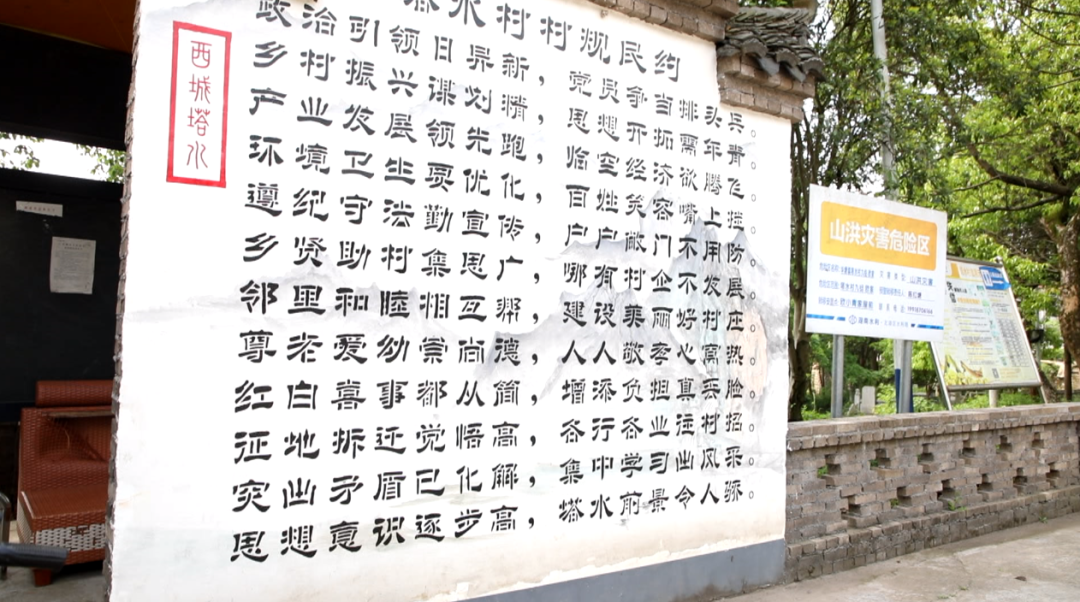 西城塔水
水村村规民约
政治引领日异新，党员争当排头兵。
乡村振兴谋划精，思想开拓需年青。
产业发展领先跑，临空经济欲腾飞。
环境卫生要优化，百姓笑容嘴上挂。
遵纪守法勤宣传，户户敞门不用防。
乡贤助村集思广，哪有村企不发展。
邻里和睦相互帮，建设美丽好村庄。
尊老爱幼崇尚德，人人敬孝心窝热。
红白喜事都从简，增添负担真丢脸。
征地拆迁觉悟高，各行各业往村招。
突出矛盾已化解，集中学习出风采。
思想意识逐步高，塔水前景令人骄。
山洪灾害危险区